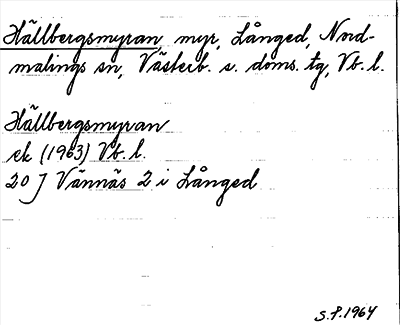 Hällbergsmyran, myr, Långed, Nord-
malings sn, Västerb. s. doms. tg, Vb. l.
Hällbergsmyran
ek (1963) Vb. l.
20 J Vännäs 2 i Långed
S.P.1964